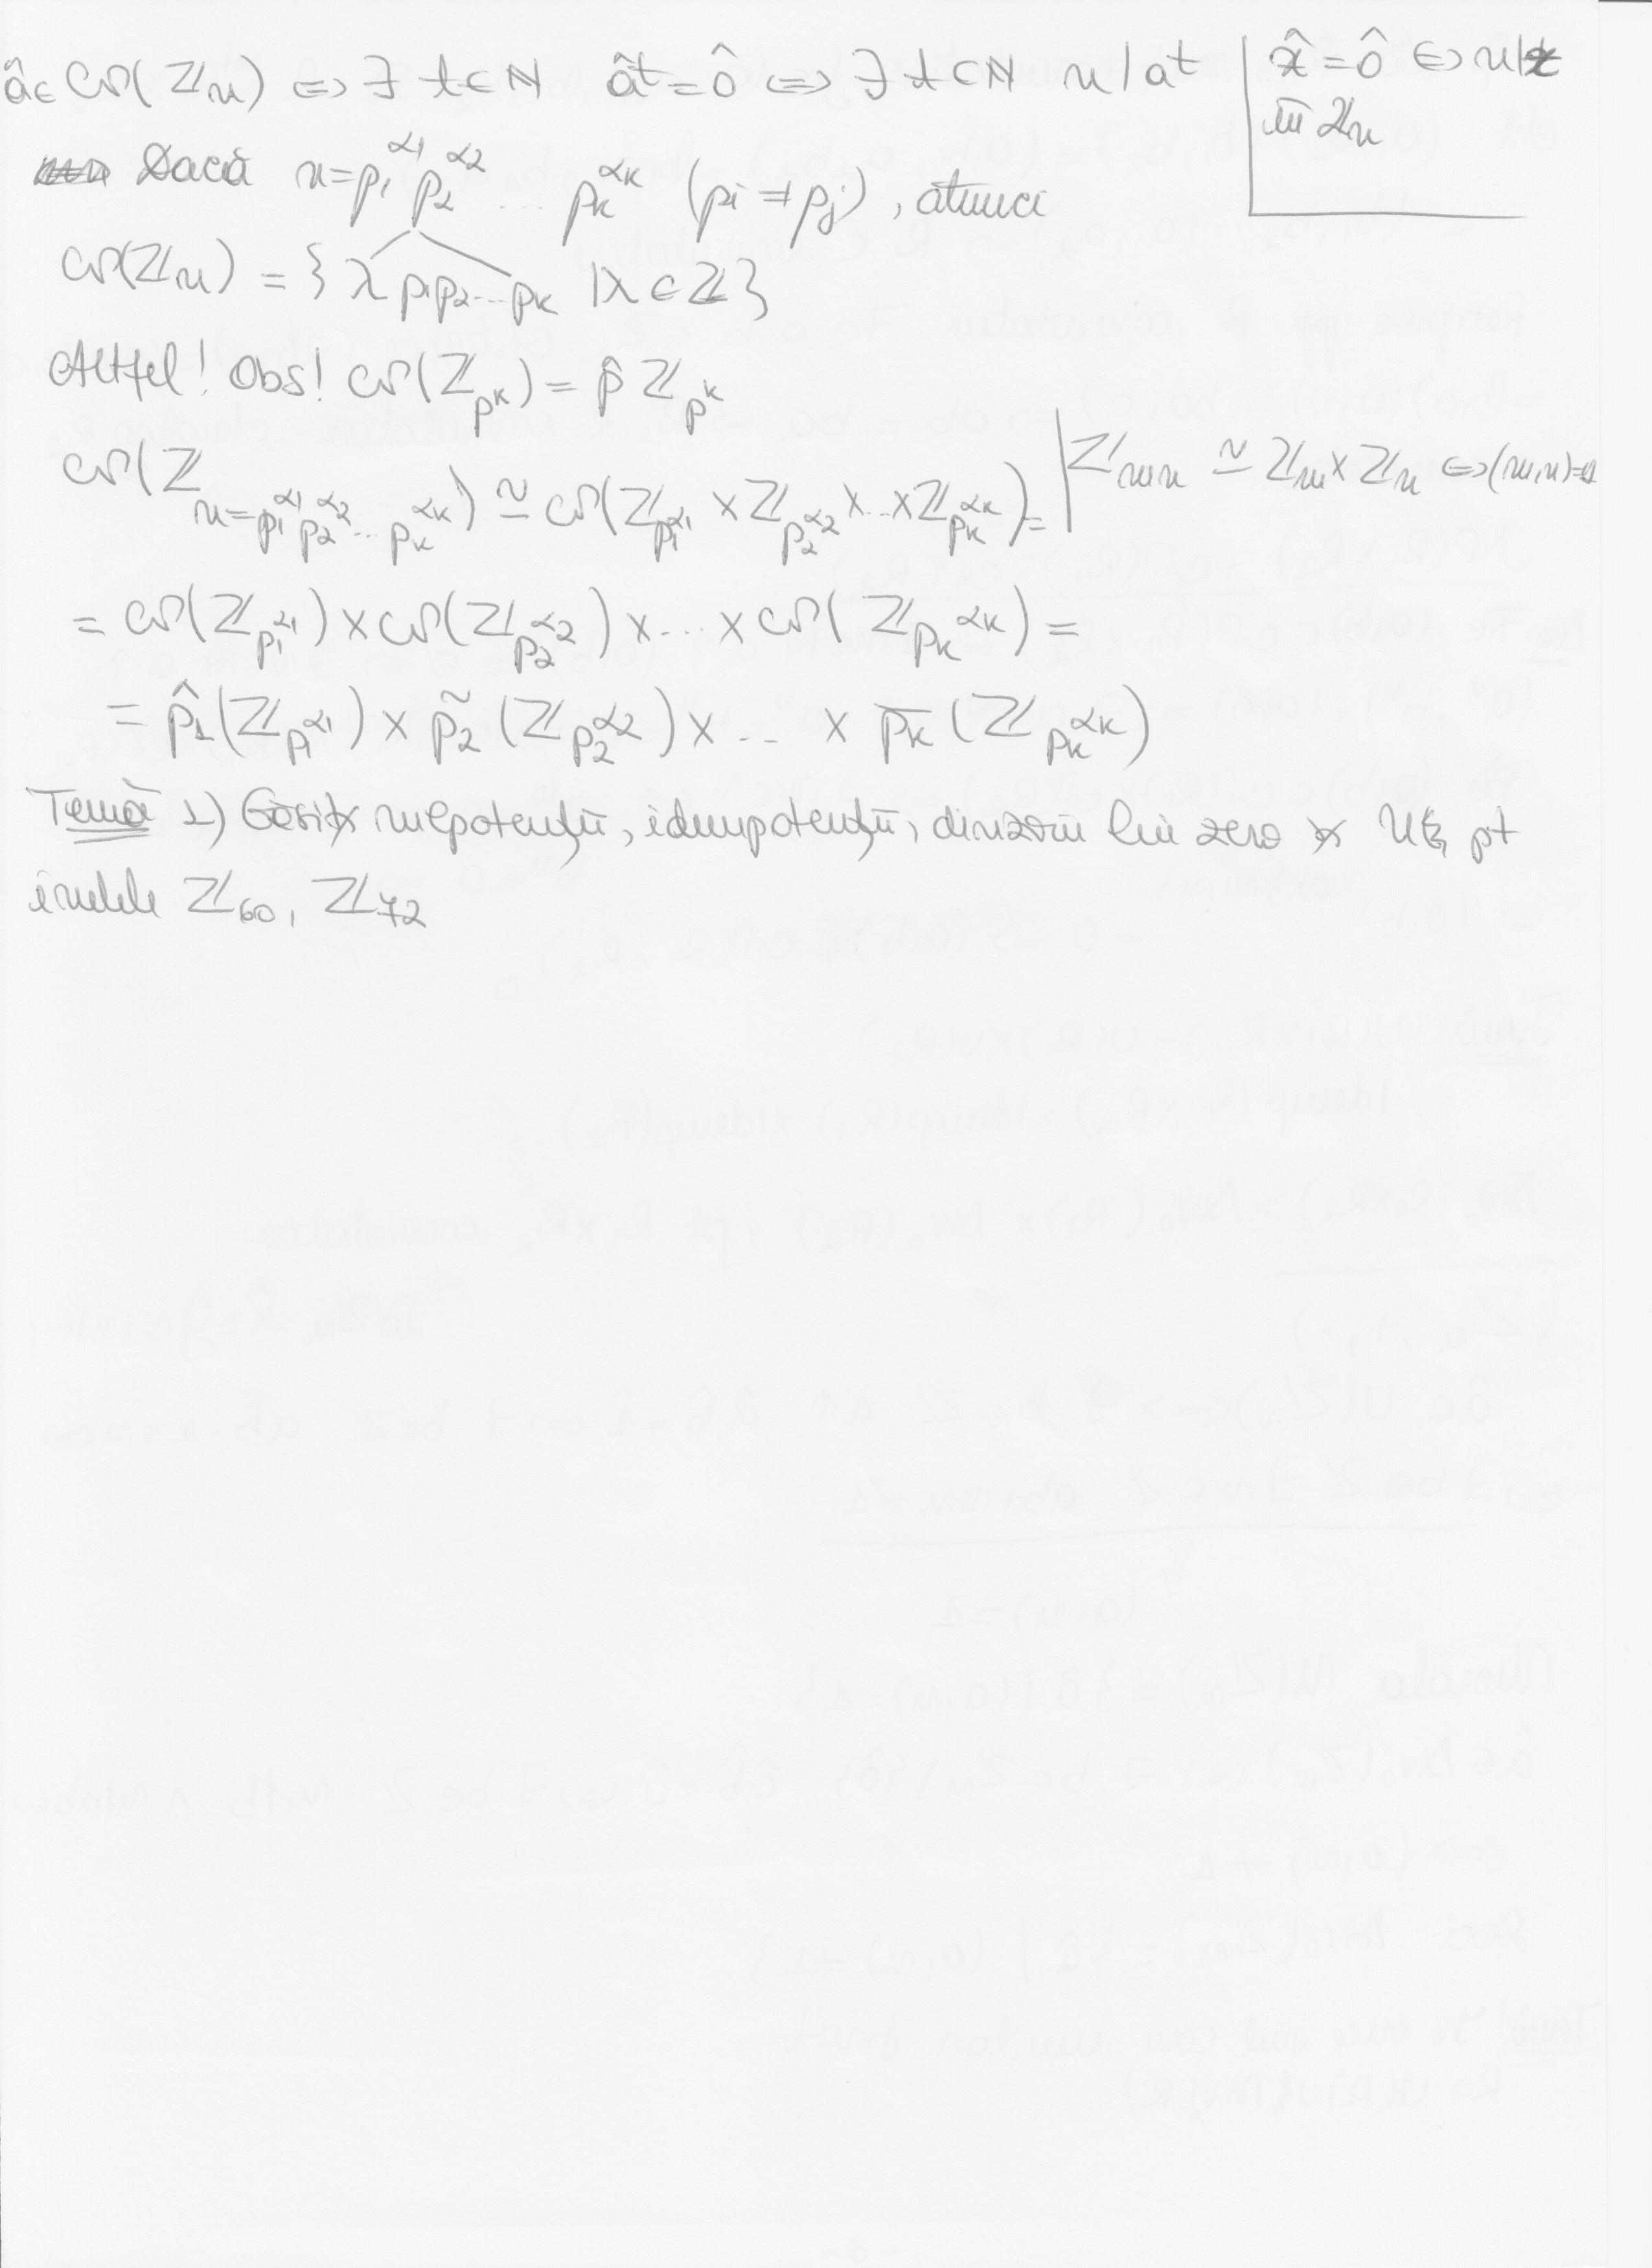 â∈ 𝒩(ℤn) ⇔ ∃ t∈ℕ â^t=ô ⇔ ∃ t∈ℕ n|a^t | x̂=ô ⇔ n|x
în ℤn
Dacă n=p1^α1 p2^α2 ... pk^αk (pi≠pj), atunci
𝒩(ℤn) = {λ p1p2...pk | λ∈ℤ}
Altfel! Obs! 𝒩(ℤp^k) = p̂ ℤp^k
𝒩(ℤ n=p1^α1 p2^α2 ... pk^αk) ≃ 𝒩(ℤp1^α1 × ℤp2^α2 ×...× ℤpk^αk) = | ℤmn ≃ ℤm×ℤn ⇔(m,n)=1
= 𝒩(ℤp1^α1) × 𝒩(ℤp2^α2) ×...× 𝒩(ℤpk^αk) =
= p̂1(ℤp1^α1) × p̃2(ℤp2^α2) × ... × p̄k(ℤpk^αk)
Temă 1) Găsiți nilpotenții, idempotenții, divizorii lui zero și pt
inelele ℤ60, ℤ72